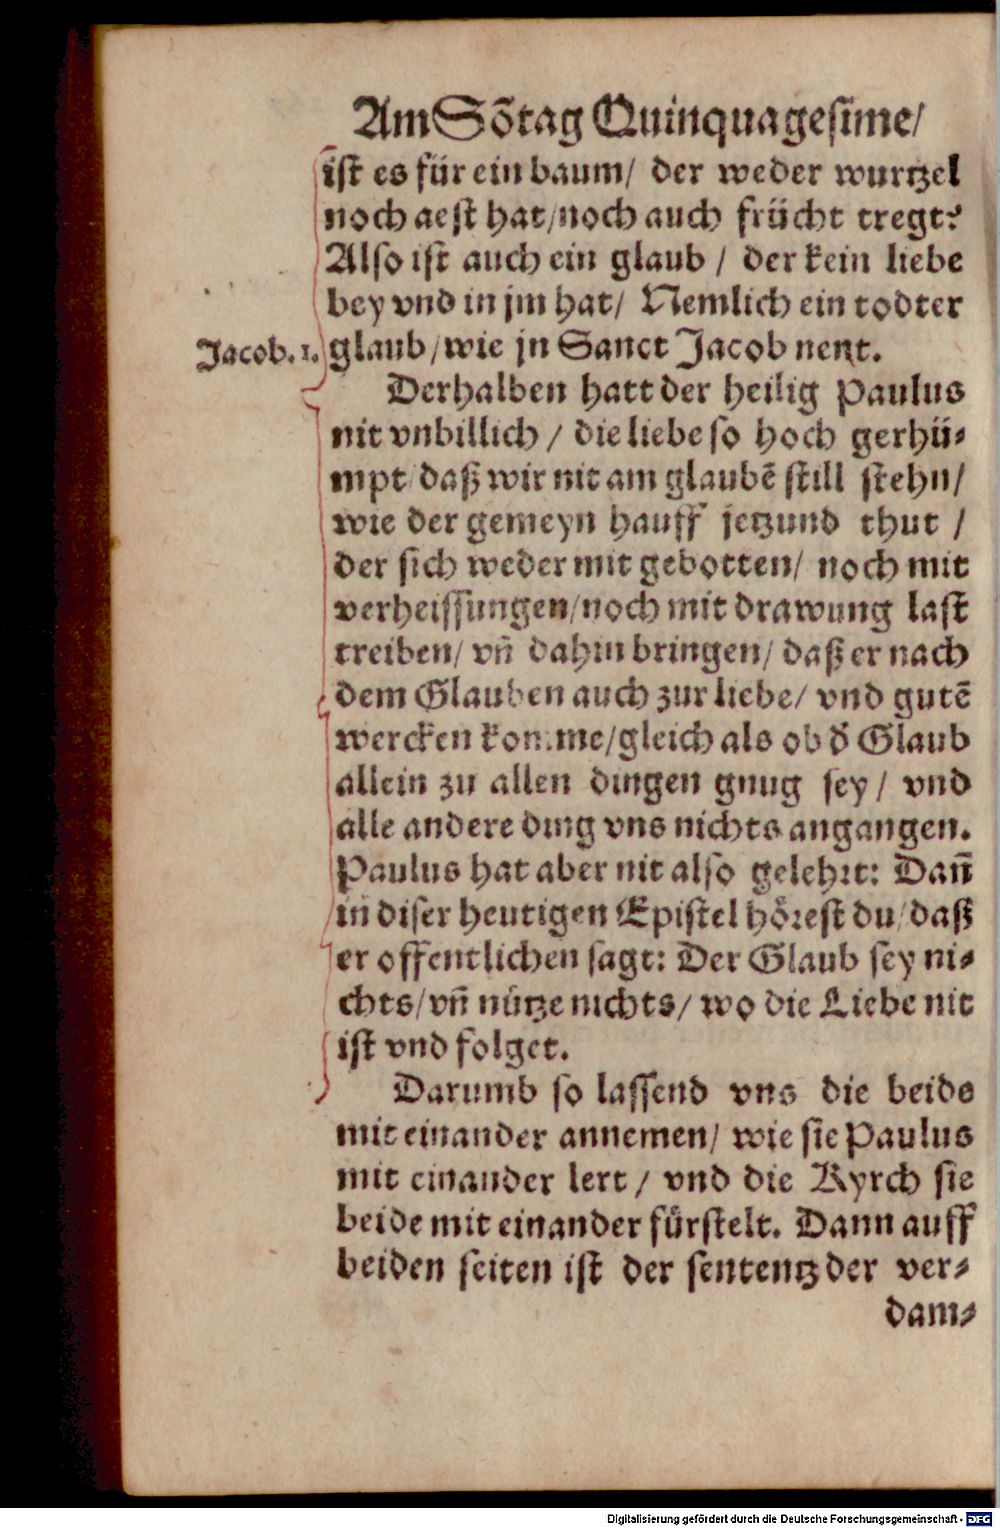 Am Sõtag Quinquagesime/
ist es für ein baum/ der weder wurtzel
noch aest hat/ noch auch frücht tregt?
Also ist auch ein glaub / der kein liebe
bey vnd in jm hat/ Nemlich ein todter
Jacob. 1. glaub/ wie jn Sanct Jacob nent.
Derhalben hatt der heilig Paulus
nit vnbillich / die liebe so hoch gerhü-
mpt/ daß wir nit am glaubẽ still stehn/
wie der gemeyn hauff jetzund thut /
der sich weder mit gebotten/ noch mit
verheissungen/ noch mit drawung last
treiben/ vñ dahin bringen/ daß er nach
dem Glauben auch zur liebe/ vnd gutẽ
wercken komme/ gleich als ob d' Glaub
allein zu allen dingen gnug sey / vnd
alle andere ding vns nichts angangen.
Paulus hat aber nit also gelehrt: Dañ
in diser heutigen Epistel hörest du/ daß
er offentlichen sagt: Der Glaub sey ni-
chts/ vñ nütze nichts/ wo die Liebe nit
ist vnd folget.
Darumb so lassend vns die beide
mit einander annemen/ wie sie Paulus
mit einander lert / vnd die Kyrch sie
beide mit einander fürstelt. Dann auff
beiden seiten ist der sententz der ver-
dam-
Digitalisierung gefördert durch die Deutsche Forschungsgemeinschaft - DFG